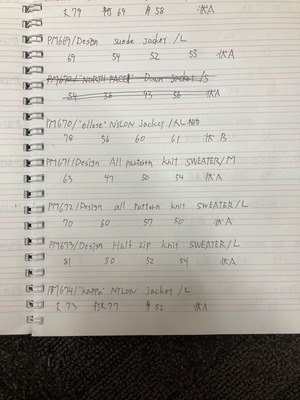 79 69 58 状A
PM669/Design suede jacket /L
69 54 52 55 状A
PM670/"NORTH FACE" Down jacket/S
54 36 43 56 状A
PM670/"ellesse" NYLON jacket /
78 56 60 61 状B
PM671/Design All pattern knit SWEATER/M
63 47 50 54 状A
PM672/Design all pattern knit SWEATER/L
70 60 57 50 状A
PM673/Design Half zip knit SWEATER/L
81 50 52 54 状A
PM674/"kappa" NYLON jacket /L
73 77 52 状A